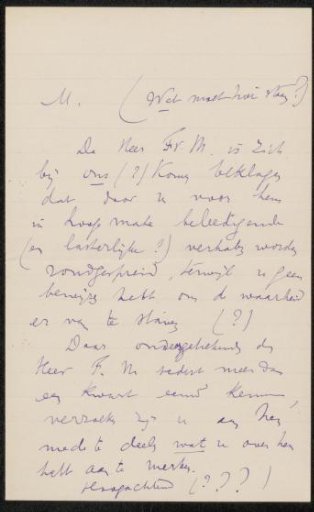 M. (Wat moet hier staan?)
De Heer Fr. M. is zich
bij ons (?) komen beklagen
dat door u voor hem
in hooge mate beleedigende
(en lasterlijke?) verhalen worden
rondgespreid, terwijl u geen
bewijzen hebt om de waarheid
er van te staven (?)
Daar ondergeteekenden den
Heer F. M. sedert meer dan
een kwart eeuw kennen,
verzoeken zij u aan hen
mede te deelen wat u over hem
hebt aan te merken.
Hoogachtend (? ? ?)